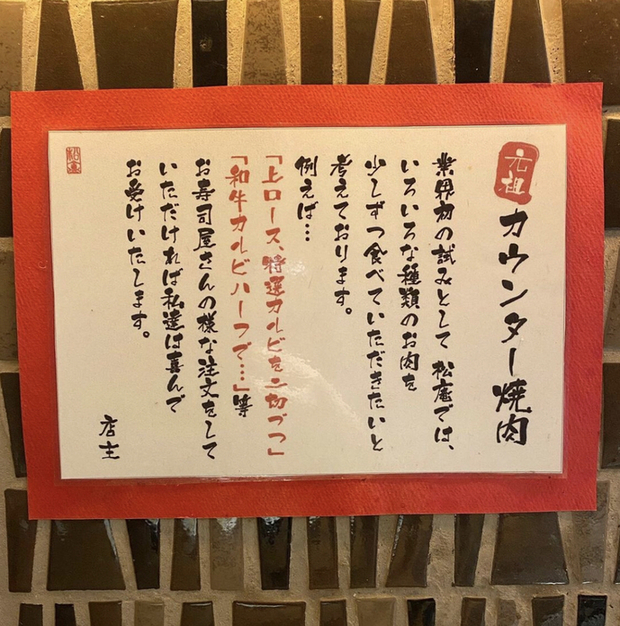 元祖 カウンター焼肉
業界初の試みとして 松庵では、
いろいろな種類のお肉を
少しずつ食べていただきたいと
考えております。
例えば…
「上ロース、特選カルビを二切づつ」
「和牛カルビハーフで…」等
お寿司屋さんの様な注文をして
いただければ私達は喜んで
お受けいたします。
店主